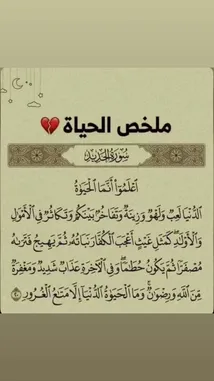 ملخص الحياة 💔
سُورَةُ الحَدِيد
ٱعۡلَمُوٓاْ أَنَّمَا ٱلۡحَيَوٰةُ
ٱلدُّنۡيَا لَعِبٞ وَلَهۡوٞ وَزِينَةٞ وَتَفَاخُرُۢ بَيۡنَكُمۡ وَتَكَاثُرٞ فِي ٱلۡأَمۡوَٰلِ
وَٱلۡأَوۡلَٰدِۖ كَمَثَلِ غَيۡثٍ أَعۡجَبَ ٱلۡكُفَّارَ نَبَاتُهُۥ ثُمَّ يَهِيجُ فَتَرَىٰهُ
مُصۡفَرّٗا ثُمَّ يَكُونُ حُطَٰمٗاۖ وَفِي ٱلۡأٓخِرَةِ عَذَابٞ شَدِيدٞ وَمَغۡفِرَةٞ
مِّنَ ٱللَّهِ وَرِضۡوَٰنٞۚ وَمَا ٱلۡحَيَوٰةُ ٱلدُّنۡيَآ إِلَّا مَتَٰعُ ٱلۡغُرُورِ ٢٠